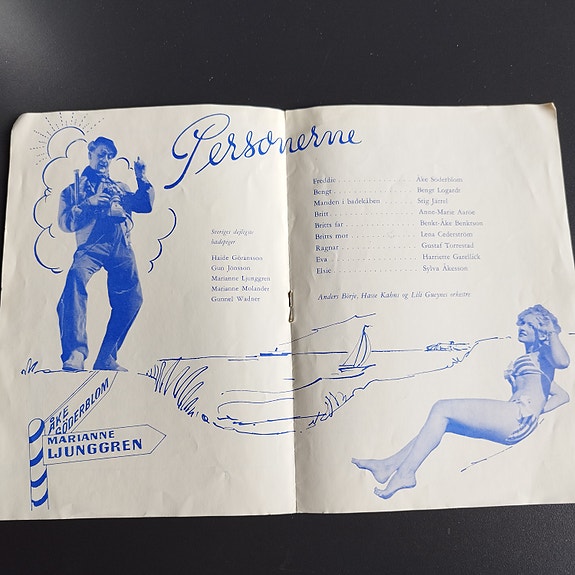 Personerne
Sveriges dejligste
badepiger
Haide Göransson
Gun Jönsson
Marianne Ljunggren
Marianne Molander
Gunnel Wadner
Freddie . . . . . . . . . . Åke Söderblom
Bengt . . . . . . . . . . Bengt Logardt
Manden i badekåben . . . . . . . . . . Stig Järrel
Britt . . . . . . . . . . Anne-Marie Aaröe
Britts far . . . . . . . . . . Benkt-Åke Benktsson
Britts mor . . . . . . . . . . Lena Cederström
Ragnar . . . . . . . . . . Gustaf Torrestad
Eva . . . . . . . . . . Harriette Garellick
Elsie . . . . . . . . . . Sylva Åkesson
Anders Börje, Hasse Kahns og Lili Gueynes orkestre.
ÅKE
SÖDERBLOM
MARIANNE
LJUNGGREN